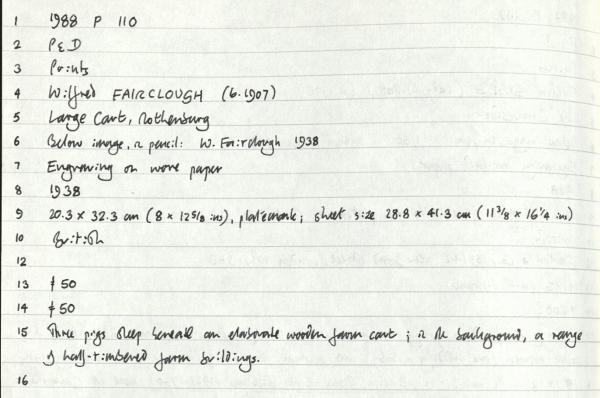 1 1988 P 110
2 P&D
3 Prints
4 Wilfred FAIRCLOUGH (b.1907)
5 Large Cart, Rothenburg
6 Below image, in pencil: W. Fairclough 1938
7 Engraving on wove paper
8 1938
9 20.3 x 32.3 cm (8 x 12 5/8 ins), platemark; sheet size 28.8 x 41.3 cm (11 3/8 x 16 1/4 ins)
10 British
12
13 £50
14 £50
15 Three pigs sleep beneath an elaborate wooden farm cart; in the background, a range
of half-timbered farm buildings.
16